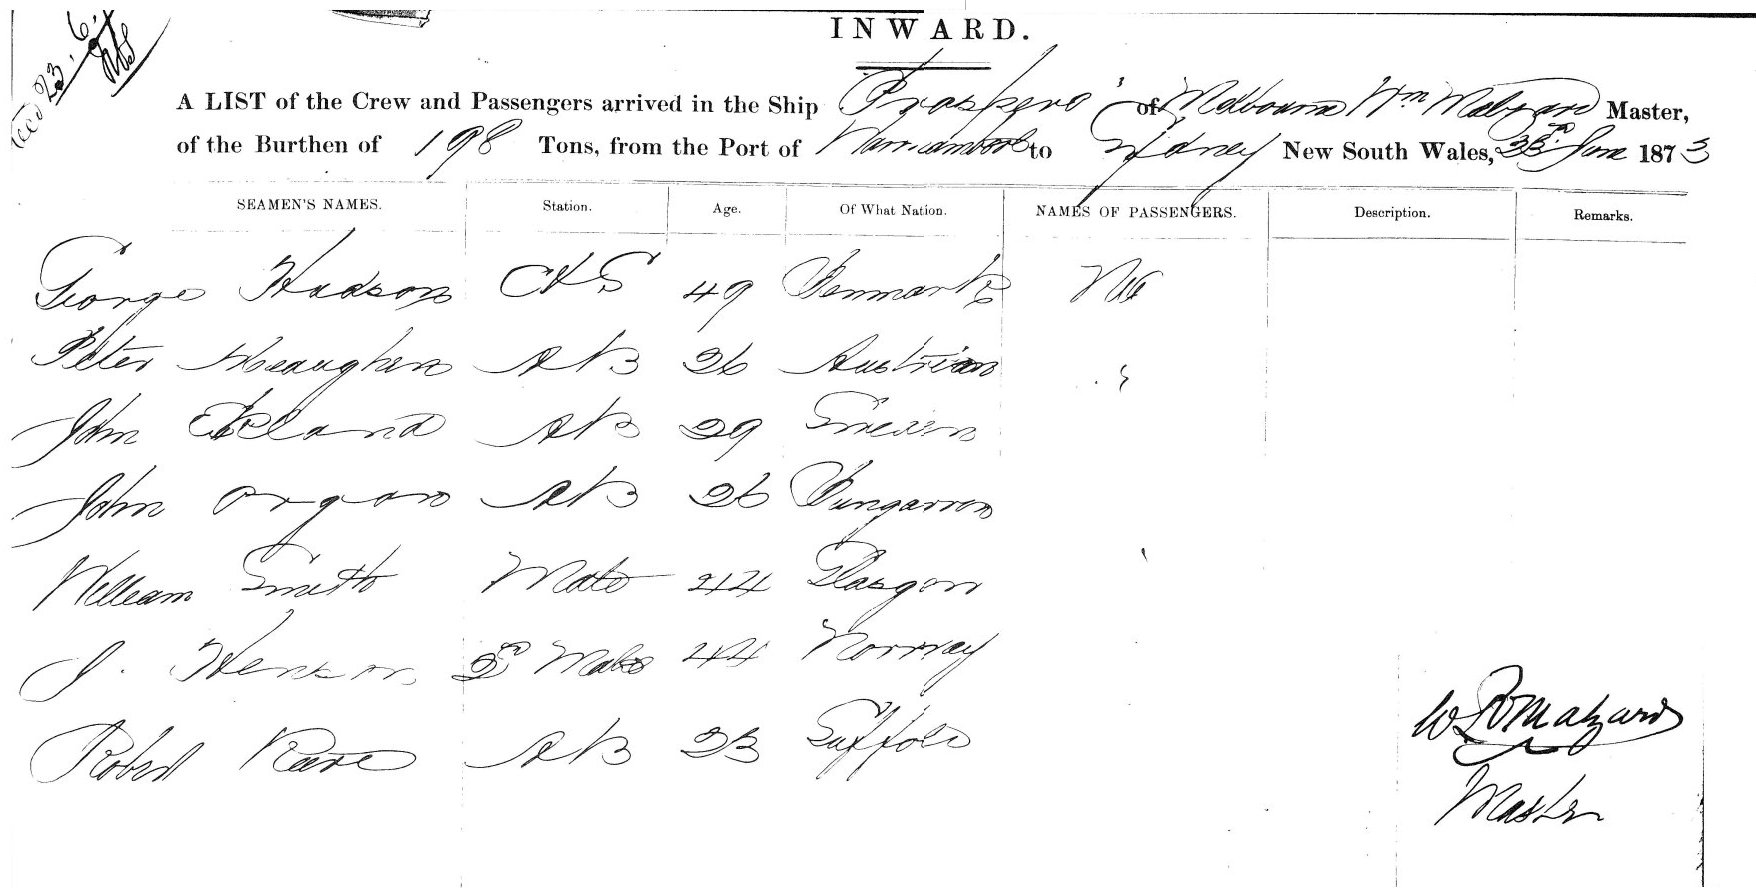 23.6.
INWARD.
A LIST of the Crew and Passengers arrived in the Ship Prospero of Melbourne Wm Malzard Master,
of the Burthen of 198 Tons, from the Port of Warrnambool to Sydney New South Wales, 23rd June 1873
SEAMEN'S NAMES. Station. Age. Of What Nation. NAMES OF PASSENGERS. Description. Remarks.
George Hudson 49 Denmark
Peter AB 26 Austrian
John Ekeland AB 29
John Organ AB 26
William Smith Mate 44 Glasgow
J. Henson 2nd Mate 44 Norway
Robert AB 23 Suffolk
Malzard
Master